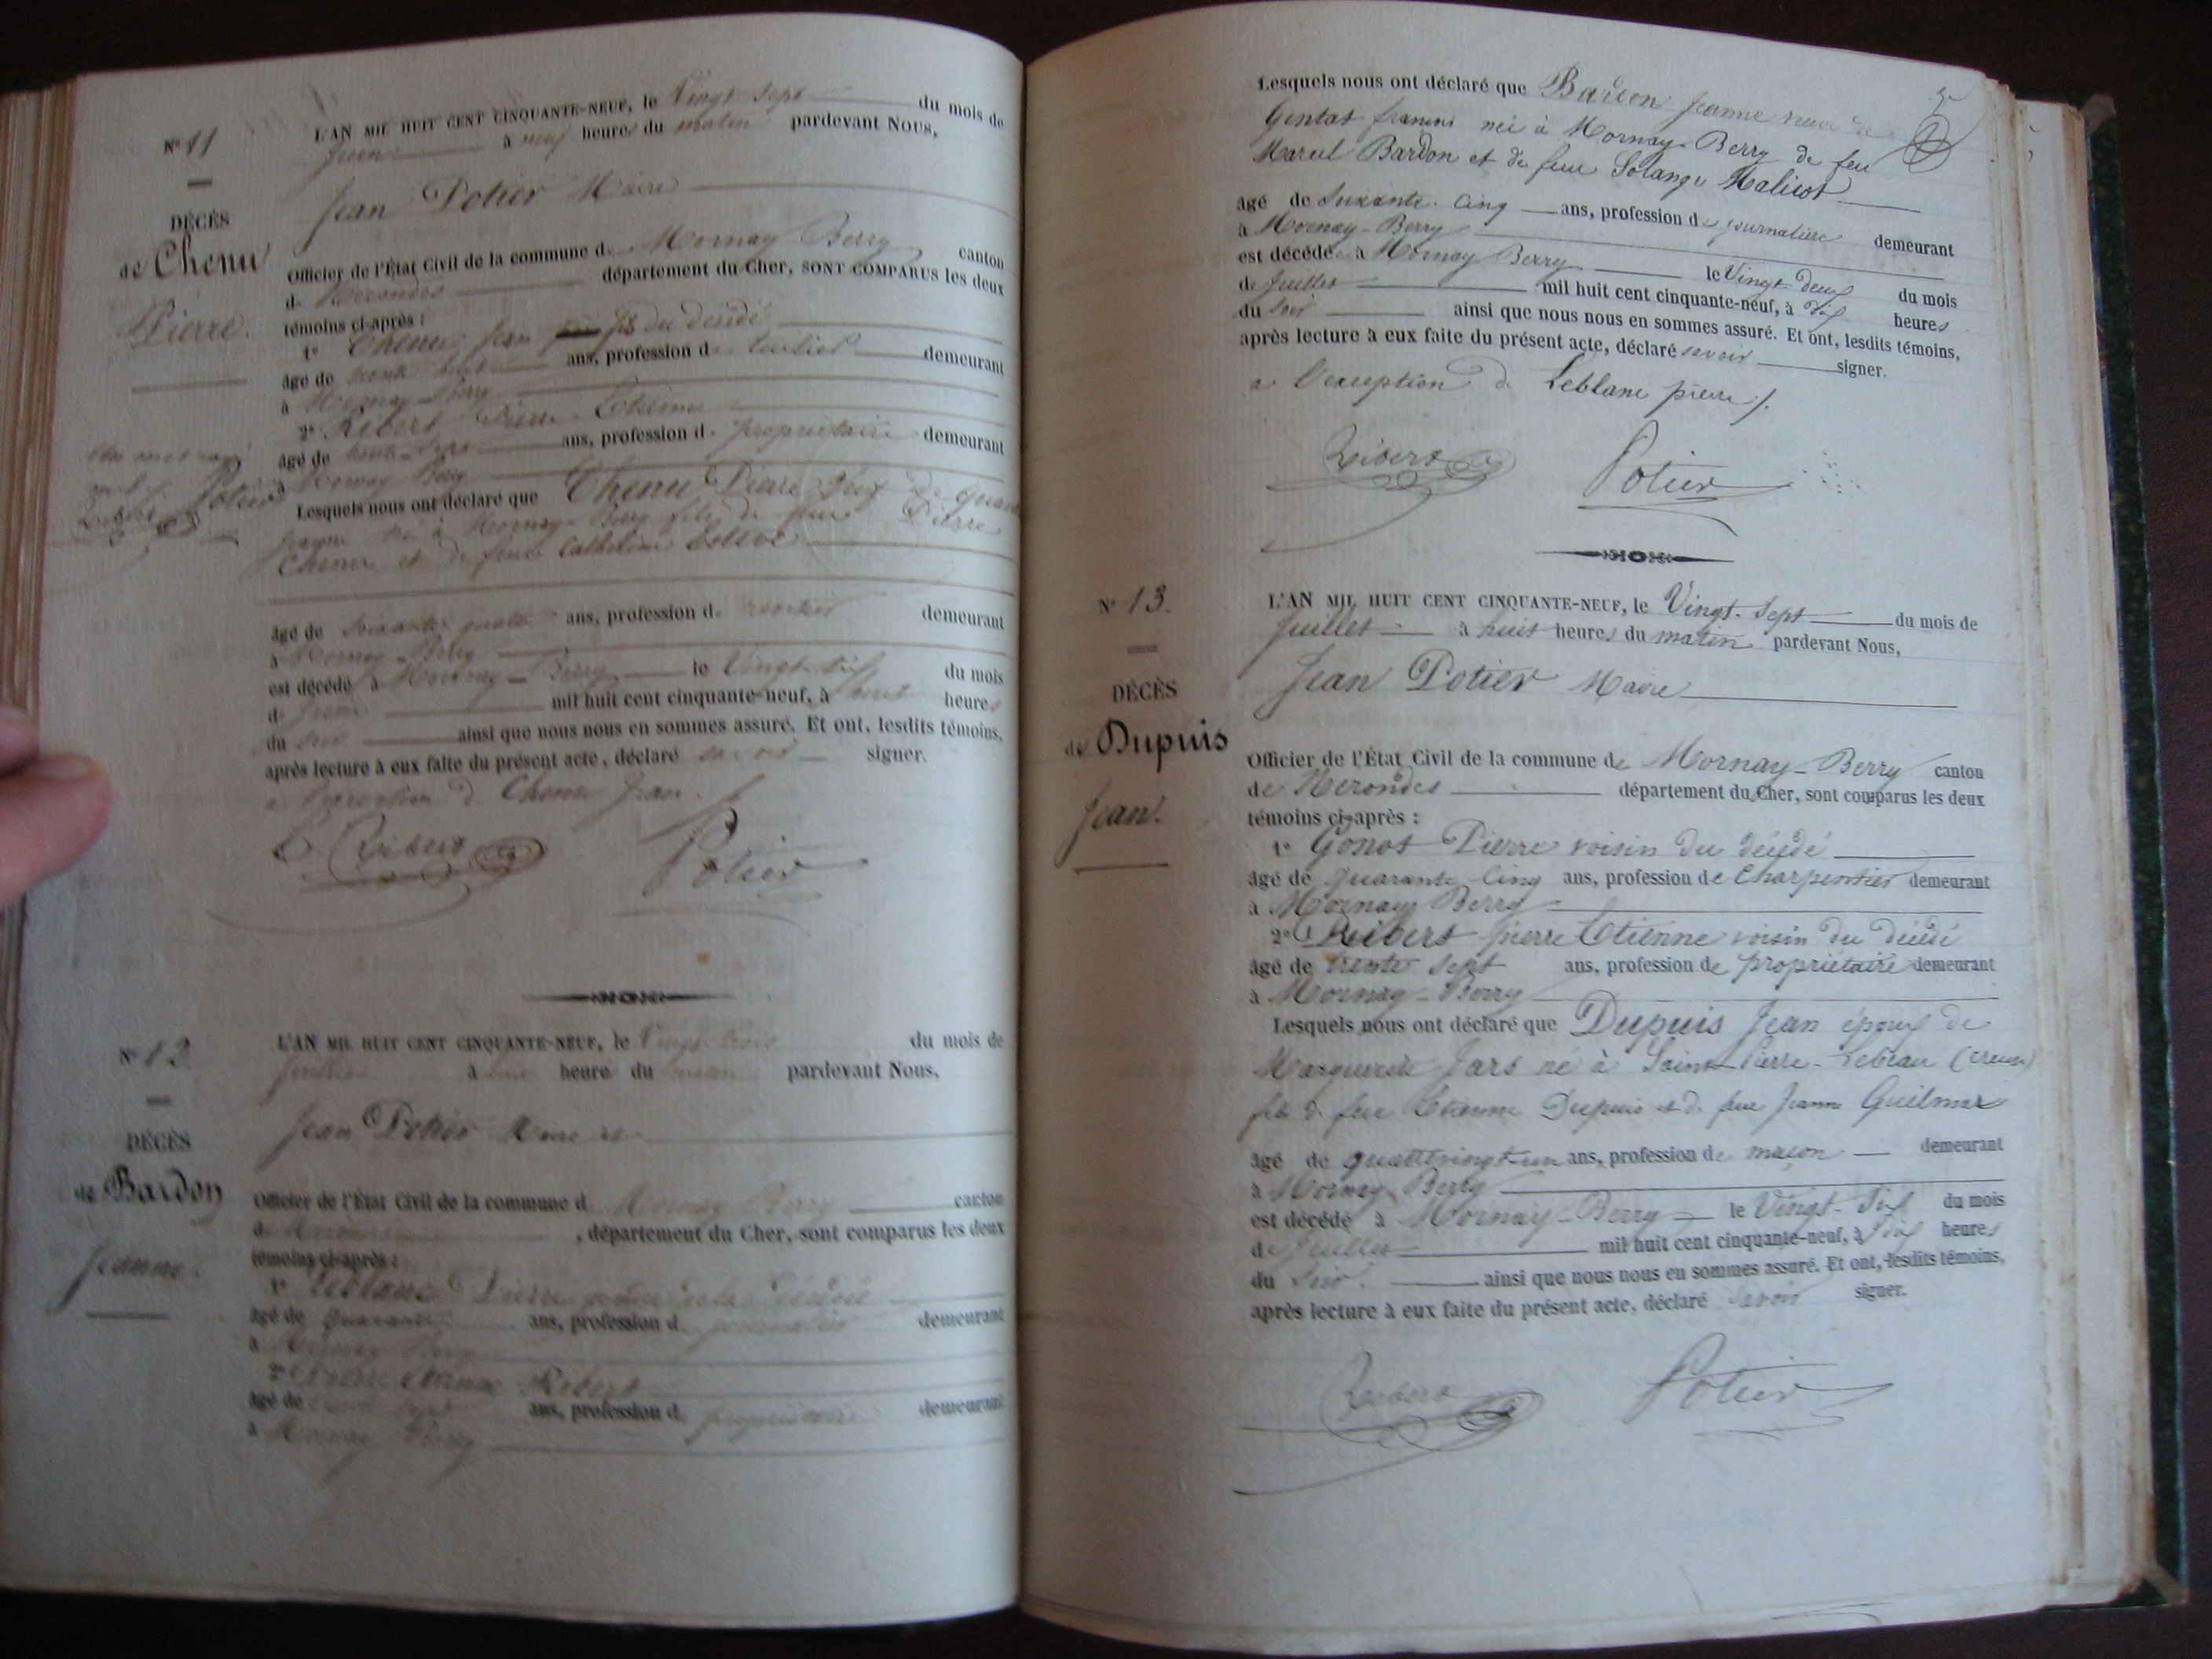 N° 11
DÉCÈS
de Chenu
Pierre.
L'AN MIL HUIT CENT CINQUANTE-NEUF, le Vingt Sept du mois de
Juin à neuf heures du matin pardevant NOUS,
Jean Potier Maire
Officier de l'État Civil de la commune de Mornay Berry canton
de Nerondes département du Cher, SONT COMPARUS les deux
témoins ci-après :
1° Chenu Jean fils du décédé
âgé de trente huit ans, profession de demeurant
à Mornay-Berry
2° Ribert Pierre Etienne
âgé de trente-sept ans, profession de propriétaire demeurant
à Mornay Berry
Potier
Lesquels nous ont déclaré que Chenu Pierre
né à Mornay-Berry fils de feu Pierre
Chenu et de feue Catherine
âgé de soixante quatre ans, profession de demeurant
à Mornay-Berry
est décédé à Mornay-Berry le Vingt-Six du mois
de Juin mil huit cent cinquante-neuf, à heures
du soir ainsi que nous nous en sommes assuré. Et ont, lesdits témoins,
après lecture à eux faite du présent acte, déclaré savoir signer.
a l'exception de Chenu Jean.
Ribert Potier
N° 12
DÉCÈS
de Bardon
Jeanne.
L'AN MIL HUIT CENT CINQUANTE-NEUF, le Vingt trois du mois de
Juillet à heure du matin pardevant Nous,
Jean Potier Maire
Officier de l'État Civil de la commune d Mornay Berry canton
de Nerondes , département du Cher, sont comparus les deux
témoins ci-après :
1° Leblanc Pierre gendre de la décédée
âgé de quarante ans, profession d journalier demeurant
à Mornay Berry
2° Pierre Etienne Ribert
âgé de trente sept ans, profession d propriétaire demeurant
à Mornay Berry
Lesquels nous ont déclaré que Bardon Jeanne veuve de
Gintat françois née à Mornay-Berry de feu
Bardon et de feue Solange Malicot
âgé de Soixante-Cinq ans, profession de journalière demeurant
à Mornay-Berry
est décédée à Mornay Berry le Vingt-deux du mois
de Juillet mil huit cent cinquante-neuf, à dix heures
du Soir ainsi que nous nous en sommes assuré. Et ont, lesdits témoins,
après lecture à eux faite du présent acte, déclaré savoir signer.
a l'exception de Leblanc pierre /.
Ribert Potier
N° 13.
DÉCÈS
de Dupuis
Jean.
L'AN MIL HUIT CENT CINQUANTE-NEUF, le Vingt-Sept du mois de
Juillet à huit heures du matin pardevant Nous,
Jean Potier Maire
Officier de l'État Civil de la commune de Mornay-Berry canton
de Nerondes département du Cher, sont comparus les deux
témoins ci-après :
1° Gonot Pierre voisin du décédé
âgé de quarante-Cinq ans, profession de Charpentier demeurant
à Mornay Berry
2° Ribert pierre Etienne voisin du décédé
âgé de trente Sept ans, profession de propriétaire demeurant
à Mornay-Berry
Lesquels nous ont déclaré que Dupuis Jean époux de
Marguerite Jars né à Saint-Pierre-Lebeau (Creuse)
fils de feu Etienne Dupuis et de feue Jeanne Guilmar
âgé de quatrevingt-un ans, profession de maçon demeurant
à Mornay Berry
est décédé à Mornay-Berry le Vingt-Six du mois
de Juillet mil huit cent cinquante-neuf, à Six heures
du Soir. ainsi que nous nous en sommes assuré. Et ont, lesdits témoins,
après lecture à eux faite du présent acte, déclaré savoir signer.
Ribert Potier